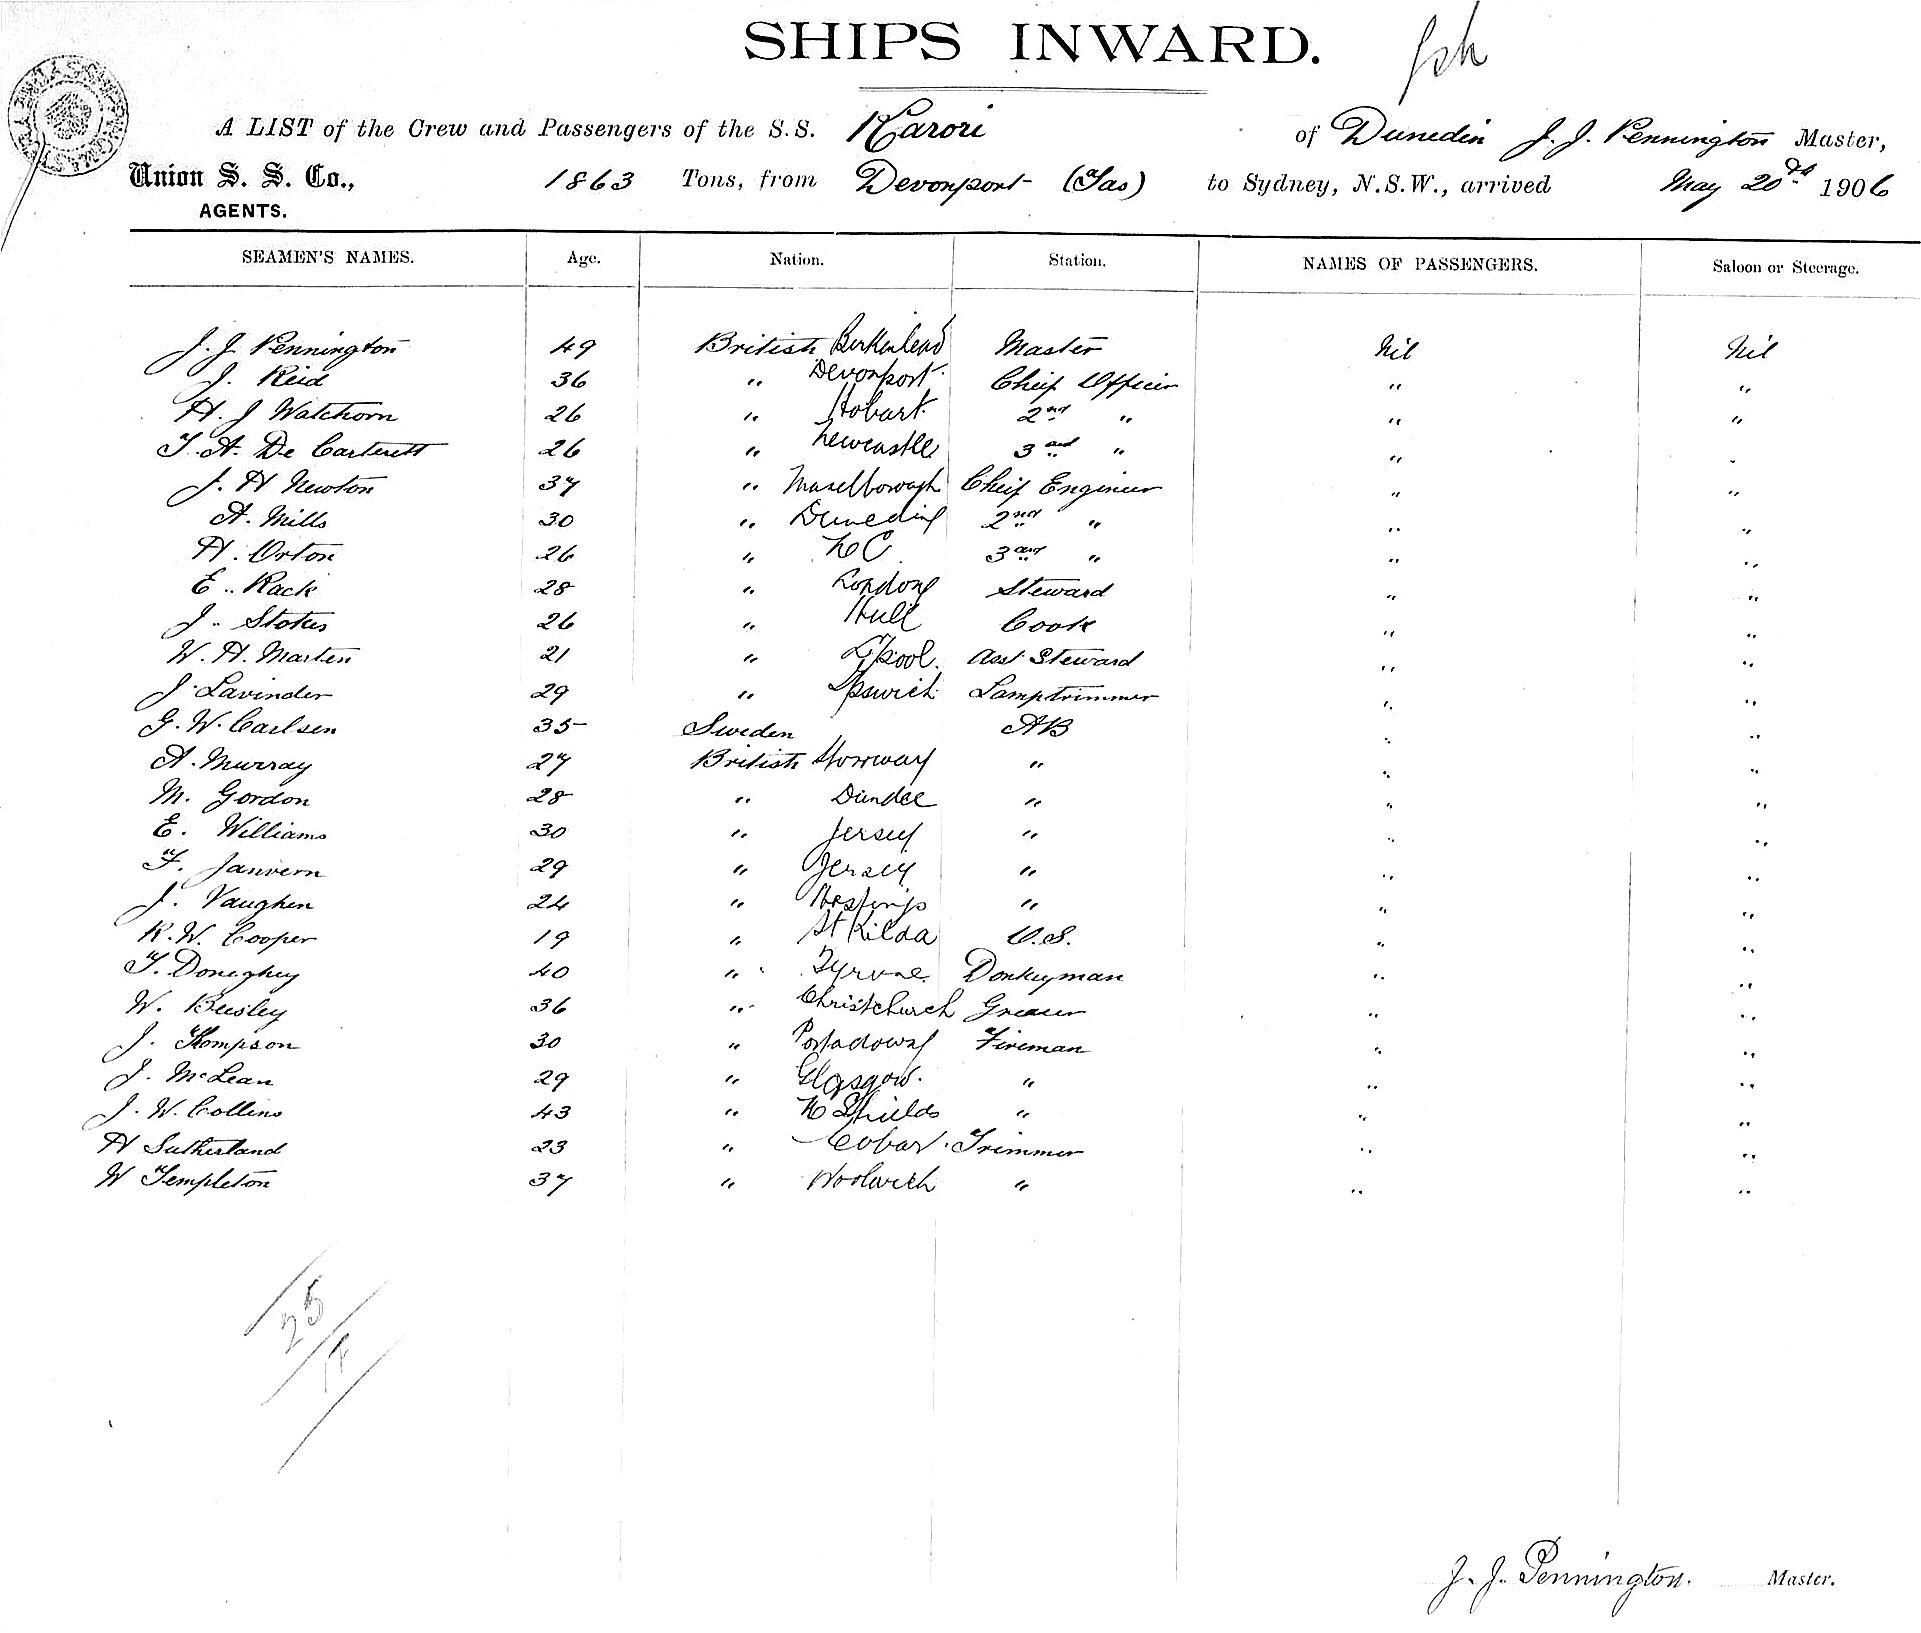 SHIPS INWARD.
A LIST of the Crew and Passengers of the S.S. Karori of Dunedin J. J. Pennington Master,
Union S. S. Co., 1863 Tons, from Devonport (Tas) to Sydney, N.S.W., arrived May 20th 1906
AGENTS.
SEAMEN'S NAMES. Age. Nation. Station. NAMES OF PASSENGERS. Saloon or Steerage.
J. J Pennington 49 British Birkenhead Master Nil Nil
J. Reid 36 " Devonport Chief Officer " "
H. J Watchorn 26 " Hobart 2nd " " "
T. A. De Carterett 26 " Newcastle 3rd " "
J. H Newton 37 " Chief Engineer " "
A. Mills 30 " Dunedin 2nd " " "
H. Orton 26 " 3rd " " "
E. Rack 28 " London Steward " "
J. Stokes 26 " Hull Cook " "
W. H. Marten 21 " L'pool. Asst Steward " "
J. Lavinder 29 " Ipswich Lamptrimmer " "
G. W. Carlsen 35 Sweden AB " "
A. Murray 27 British " " "
M. Gordon 28 " Dundee " " "
E. Williams 30 " Jersey " " "
F. Janvern 29 " Jersey " " "
J. Vaughen 24 " Hastings " " "
R. W. Cooper 19 " St Kilda O.S. " "
T. Doneghey 40 " Tyrone Donkeyman " "
W. Beesley 36 " Christchurch Greaser " "
J. Thompson 30 " Portadown Fireman " "
J. McLean 29 " Glasgow. " " "
J. W. Collins 43 " N Shields " " "
H Sutherland 23 " Cobar. Trimmer " "
W Templeton 37 " Woolwich " " "
25
J. J. Pennington. Master.